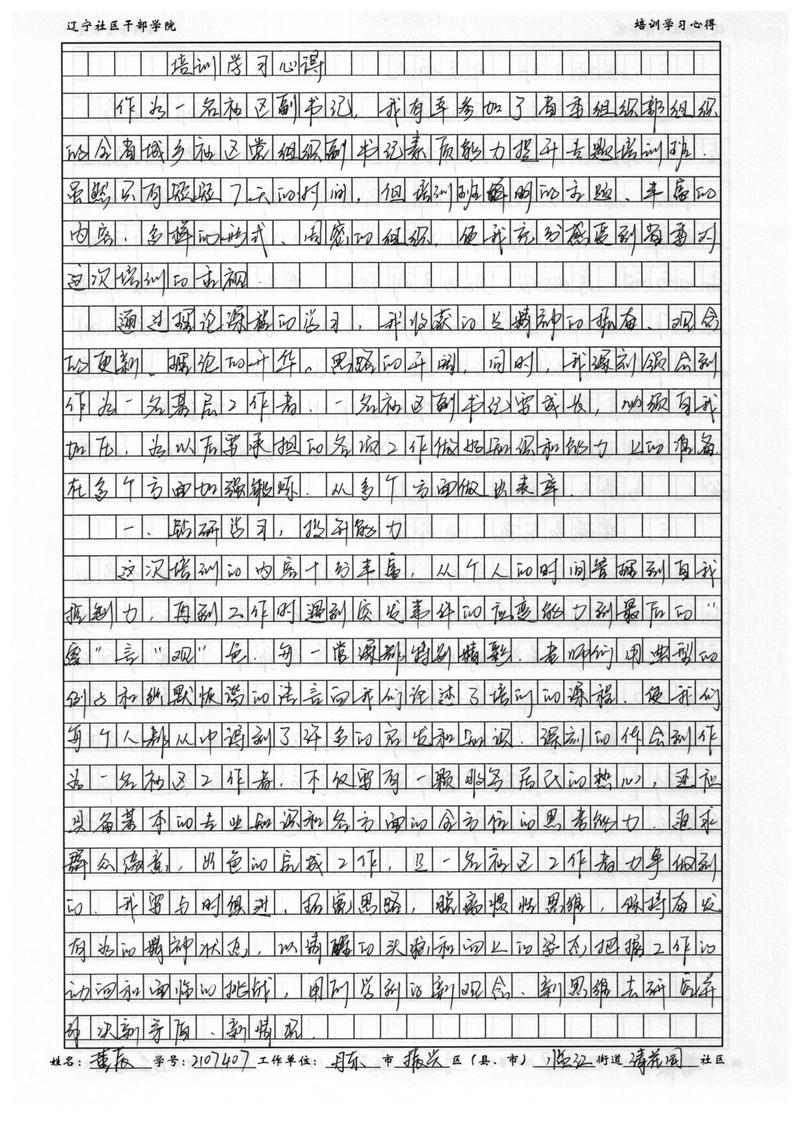 辽宁社区干部学院 培训学习心得
培训学习心得
作为一名社区副书记，我有幸参加了省委组织部组织
的全省城乡社区党组织副书记素质能力提升专题培训班.
虽然只有短短7天的时间，但培训班鲜明的主题、丰富的
内容、多样的形式、周密的组织，使我充分感受到省委对
这次培训的重视.
通过理论课程的学习，我收获的是精神的振奋、观念
的更新、理论的升华、思路的开阔，同时，我深刻领会到
作为一名基层工作者、一名社区副书记要成长，必须自我
加压，为以后要承担的各项工作做好知识和能力上的准备
在多个方面加强锻炼.从多个方面做出表率.
一、钻研学习，提升能力
这次培训的内容十分丰富，从个人的时间管理到自我
控制力，再到工作时遇到突发事件的应变能力到最后的“
察”言“观”色.每一堂课都特别精彩.老师们用典型的
例占和幽默恢谐的语言向我们论述了培训的课程.使我们
每个人都从中得到了许多的启发和知识.深刻的体会到作
为一名社区工作者.不仅要有一颗服务居民的热心，还应
具备基本的专业知识和各方面的全方位的思考能力.追求
群众满意，出色的完成工作，是一名社区工作者力争做到
的.我要与时俱进、拓宽思路，脱离惯性思维，保持奋发
有为的精神状态，以清醒的头脑和向上的姿态把握工作的
动向和面临的挑战，用所学到的新观念、新思维去研究并
解决新矛盾、新情况.
姓名： 董辰 学号：2107407 工作单位： 丹东 市 振兴 区（县、市） 临江 街道 清花园 社区